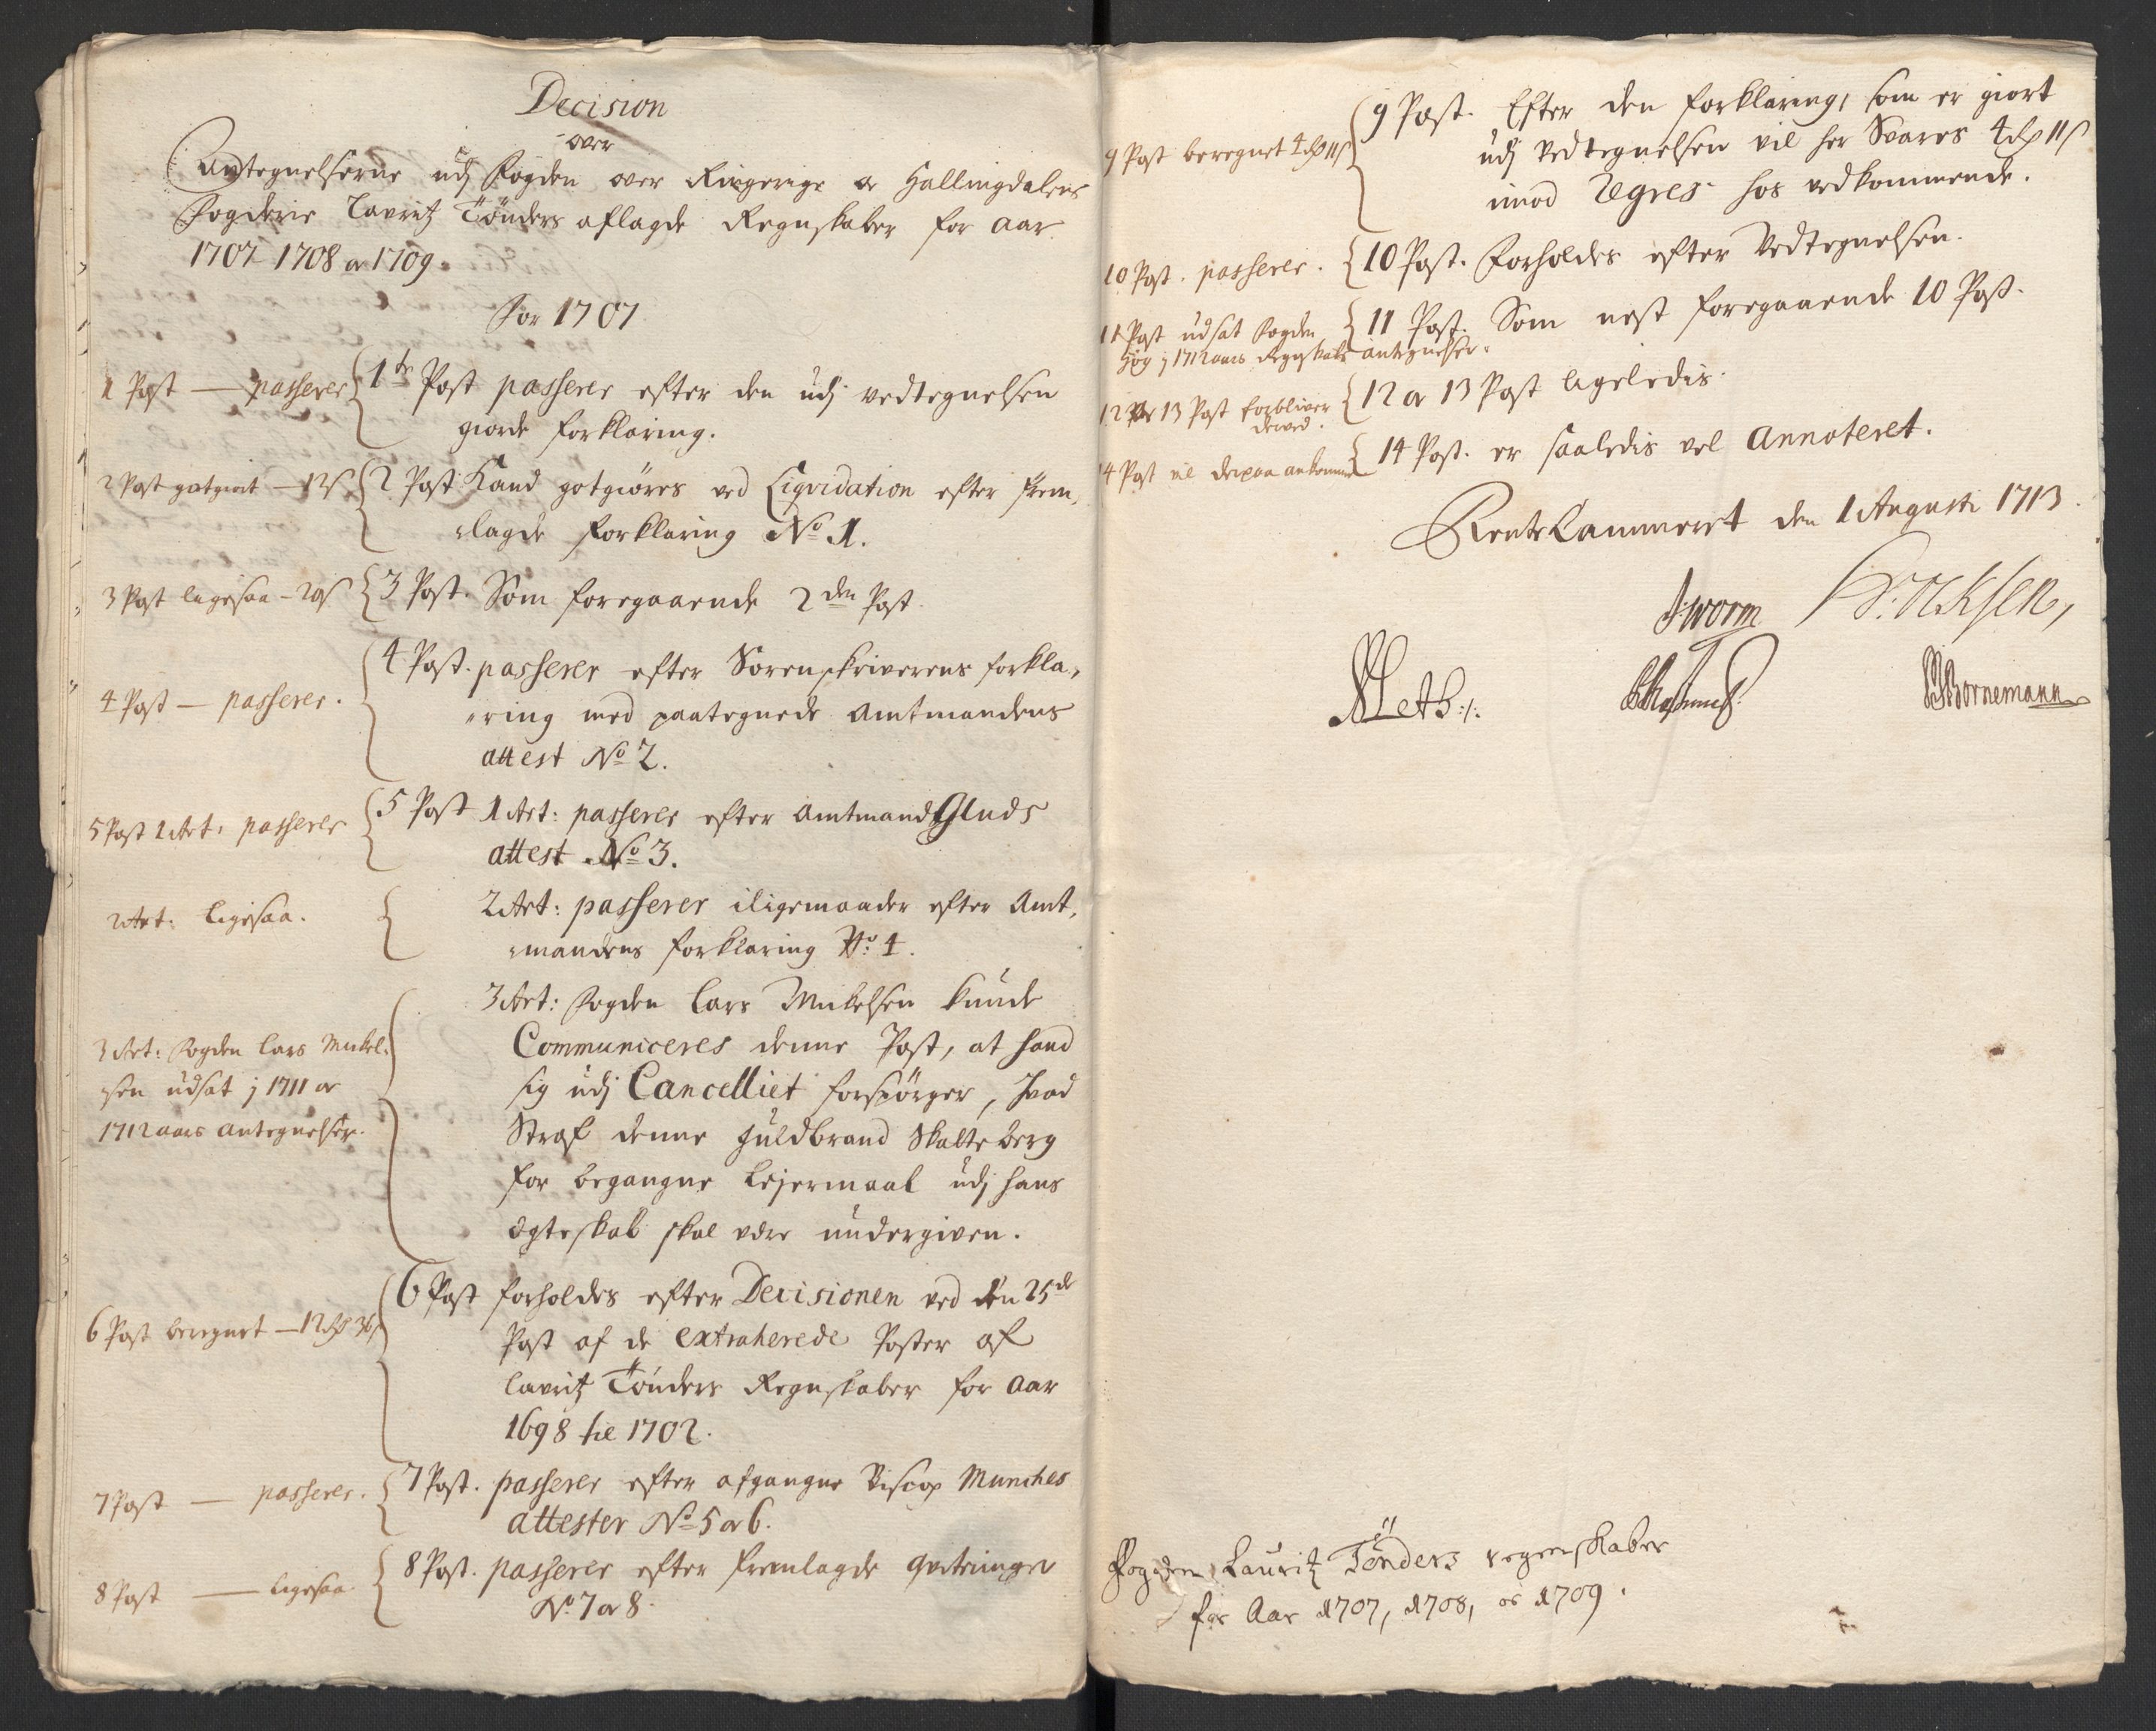 Decision
over
Antegnelserne udj Fogden over Ringerige oc Hallingdalens
Fogderie Lavritz Tönders aflagde Regnskaber for Aar
1707 1708 oc 1709.
For 1707
1 Post — passerer
1te Post passerer efter den udj vedtegnelsen
giorde forklaring.
2 Post gotgiort — 12 s
2 Post Kand gotgiöres ved Liqvidation efter frem,
lagde forklaring No 1.
3 Post ligesaa
3 Post. Som foregaaende 2den Post.
4 Post — passerer.
4 Post. passerer efter Sorenskriverens forkla,
ring med paategnede Amtmandens
attest No 2.
5 Post 1 Art: passerer
5 Post 1 Art: passerer efter Amtmand Gluds
attest No 3.
2 Art: ligesaa.
2 Art: passerer iligemaader efter Amt,
mandens forklaring No 4.
3 Art: Fogden Lars Mickel,
sen udsat j 1711 oc
1712 aars antegnelser.
3 Art: Fogden Lars Mickelsen kunde
Communiceres denne Post, at hand
sig udj Cancelliet forspörger, hvad
Straf denne Guldbrand Skalteberg
for begangne Lejermaal udj hans
ægteskab skal være undergiven.
6 Post beregnet — 12 rdr 36 s
6 Post forholdes efter Decisionen ved den 25de
Post af de extraherede Poster af
Lavritz Tönders Regnskaber for Aar
1698 til 1702.
7 Post — passerer.
7 Post. passerer efter afgangne Biscop Munches
attester No 5 oc 6.
8 Post — ligesaa
8 Post. passerer efter fremlagde qviteringer
No 7 oc 8.
9 Post beregnet 4 rdr 11 s
9 Post. Efter den forklaring, som er giort
udj vedtegnelsen vil her Svares 4 rdr 11 s
imod Regres hos vedkommende.
10 Post. passerer.
10 Post. Forholdes efter Vedtegnelsen.
11 Post udsat Fogden
j 1712 aars Regnskabs antegnelser.
11 Post. Som nest foregaaende 10 Post.
12 oc 13 Post forbliver
derved.
12 oc 13 Post ligeledis.
14 Post vil derpaa ankomme
14 Post. er saaledis vel Annoteret.
RenteCammeret den 1 Augusti 1713.
J Worm
Bornemann
Fogden Lauritz Tönders regenskaber
for Aar 1707, 1708, oc 1709.